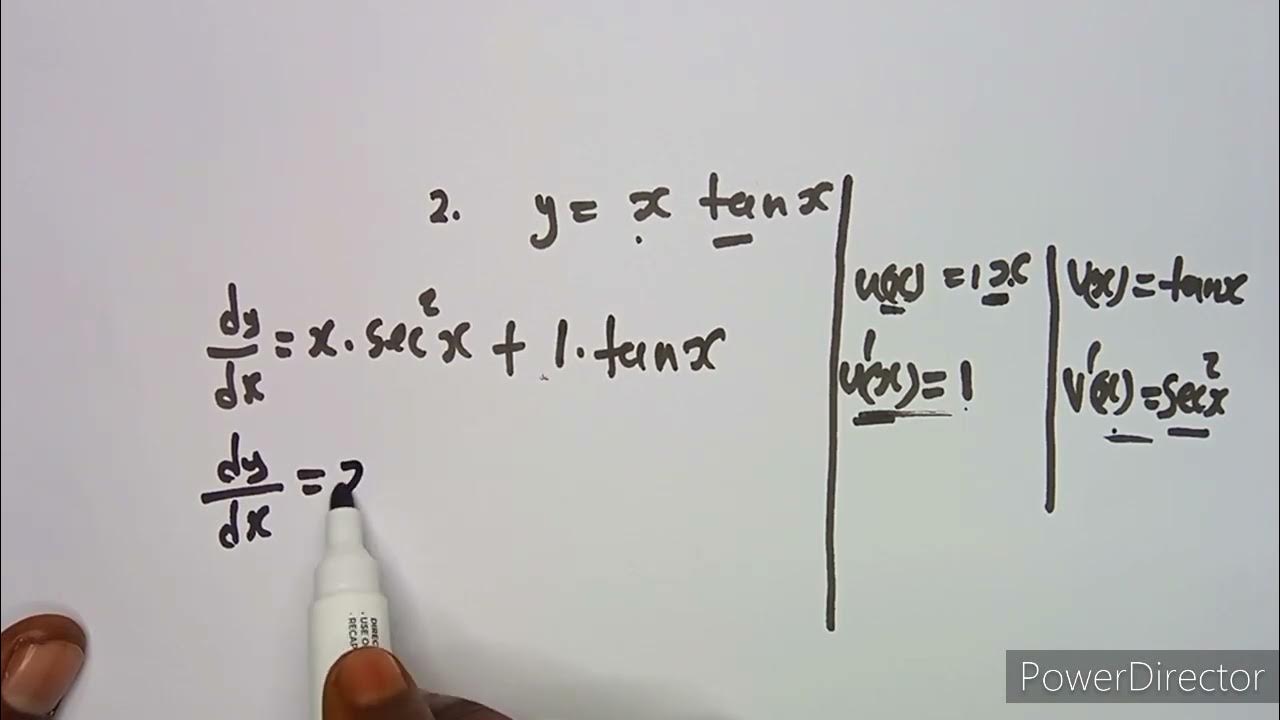 2. y = x tan x
dy/dx = x · sec²x + 1 · tan x
dy/dx =
u(x) = 1
u'(x) = 1
v(x) = tan x
v'(x) = sec²x
DIREC
· USE O
· RECAP
PowerDirector